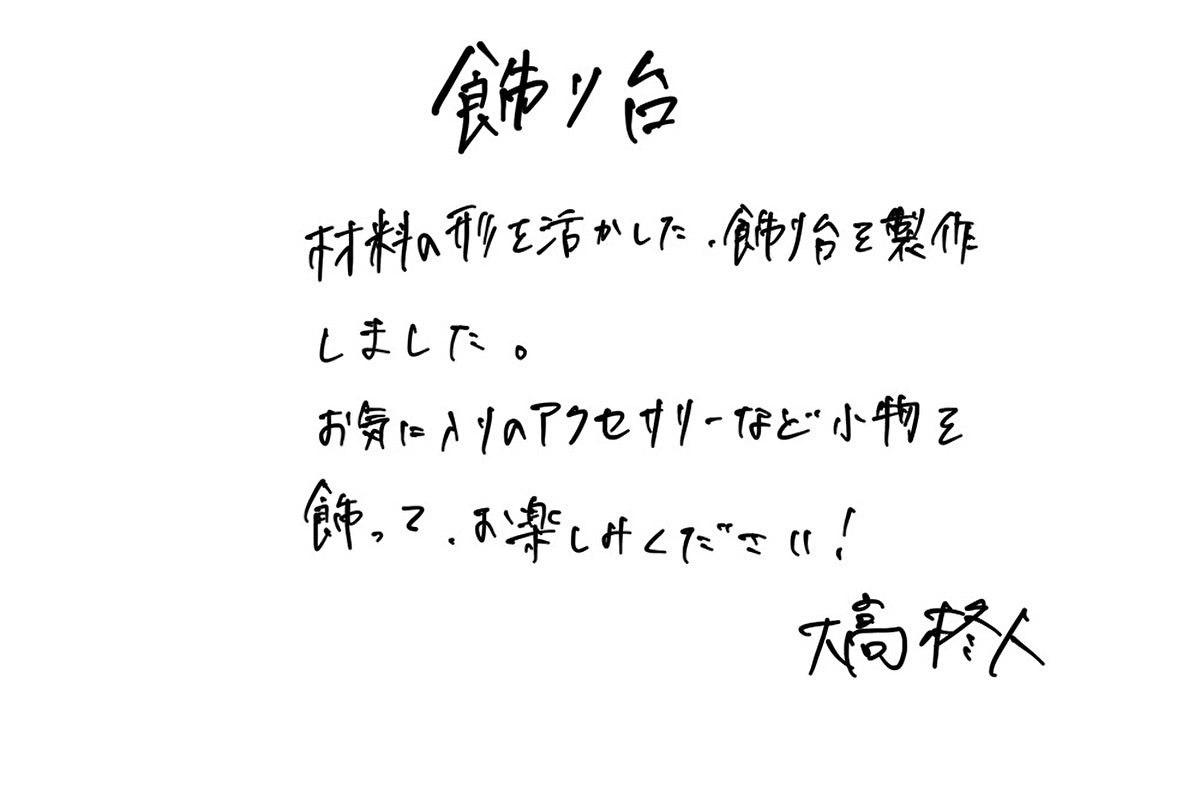 飾り台
材料の形を活かした、飾り台を製作
しました。
お気に入りのアクセサリーなど小物を
飾って、お楽しみください!
大高柊人